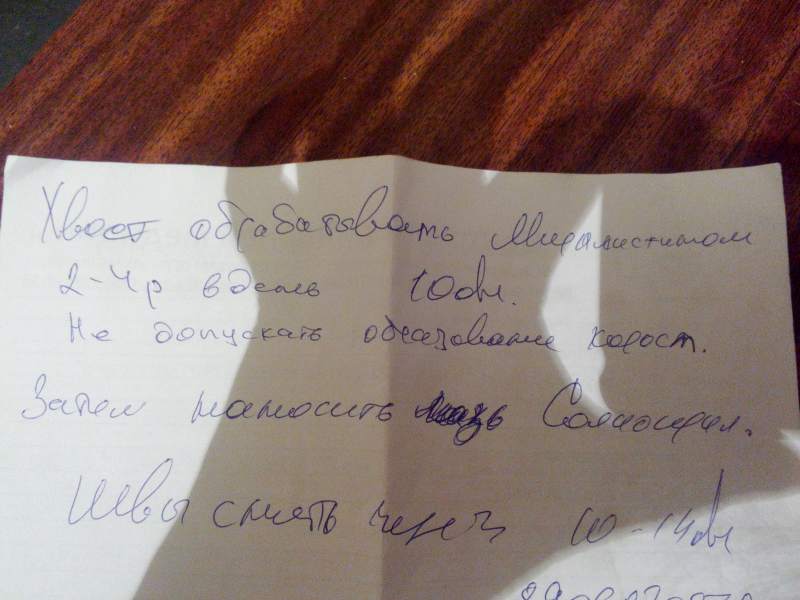 Хвост обрабатывать Мирамистином
2-4 р в день 10 дн.
Не допускать образование корост.
Затем наносить мазь Солкосерил.
Швы снять через 10-14 дн